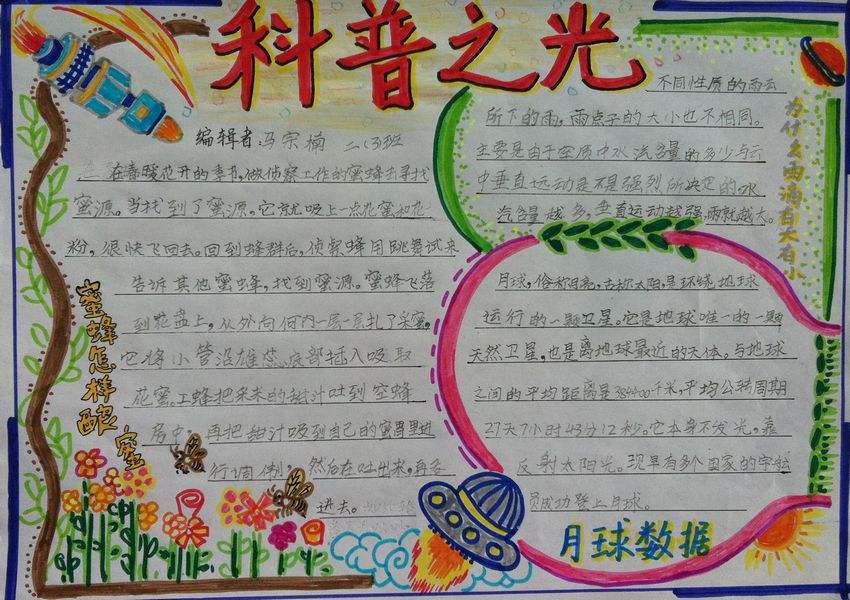 科普之光
编辑者:马宗楠 二(3)班
蜜蜂怎样酿蜜
在春暖花开的季节,做侦察工作的蜜蜂去寻找
蜜源。当找到了蜜源,它就吸上一点花蜜和花
粉,很快飞回去。回到蜂群后,侦察蜂用跳舞试来
告诉其他蜜蜂,找到蜜源。蜜蜂飞落
到花蕊上,从外向何内一层一层扎了采蜜,
它将小管沿雄蕊底部插入吸取
花蜜。工蜂把采来的甜汁吐到空蜂
房中,再把甜汁吸到自己的蜜胃里进
行调制,然后在吐出来,再吞
进去。
为什么雨滴有大有小
不同性质的雨云
所下的雨,雨点子的大小也不相同。
主要是由于空质中水汽含量的多少与云
中垂直运动是不是强烈所决定的。水
汽含量越多,垂直运动越强,雨就越大。
月球,俗称月亮,古称太阳,是环绕地球
运行的一颗卫星。它是地球唯一的一颗
天然卫星,也是离地球最近的天体。与地球
之间的平均距离是384400千米,平均公转周期
27天7小时43分12秒。它本身不发光,靠
反射太阳光。现早有多个国家的宇航
员成功登上月球。
月球数据